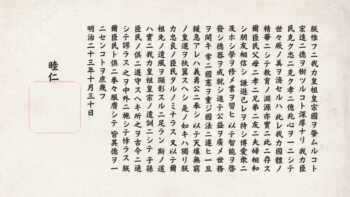 朕惟フニ我カ皇祖皇宗國ヲ肇ムルコト
宏遠ニ德ヲ樹ツルコト深厚ナリ我カ臣
民克ク忠ニ克ク孝ニ億兆心ヲ一ニシテ
世々厥ノ美ヲ濟セルハ此レ我カ國體ノ
精華ニシテ教育ノ淵源亦實ニ此ニ存ス
爾臣民父母ニ孝ニ兄弟ニ友ニ夫婦相和
シ朋友相信シ恭儉己レヲ持シ博愛衆ニ
及ホシ學ヲ修メ業ヲ習ヒ以テ智能ヲ啓
發シ德器ヲ成就シ進テ公益ヲ廣メ世務
ヲ開キ常ニ國憲ヲ重シ國法ニ遵ヒ一旦
緩急アレハ義勇公ニ奉シ以テ天壤無窮
ノ皇運ヲ扶翼スヘシ是ノ如キハ獨リ朕
カ忠良ノ臣民タルノミナラス又以テ爾
祖先ノ遺風ヲ顯彰スルニ足ラン 斯ノ道
ハ實ニ我カ皇祖皇宗ノ遺訓ニシテ子孫
臣民ノ俱ニ遵守スヘキ所之ヲ古今ニ通
シテ謬ラス之ヲ中外ニ施シテ悖ラス朕
爾臣民ト俱ニ拳々服膺シテ咸其德ヲ一
ニセンコトヲ庶幾フ
明治二十三年十月三十日
睦仁